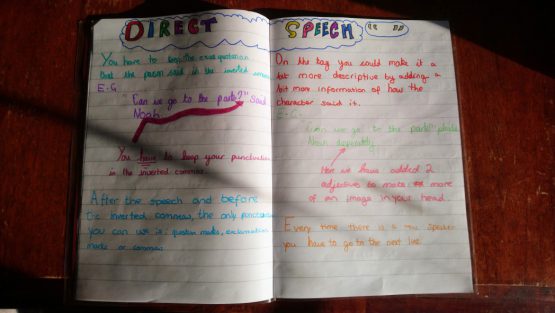 DIRECT SPEECH
You have to keep the exact quotation
that the person said in the inverted commas
E.G
"Can we go to the park?" said
Noah.
You have to keep your punctuation
in the inverted commas
After the speech and before
the inverted commas, the only punctuation
you can use is: question marks, exclamation
marks or commas
On the tag you could make it a
bit more descriptive by adding a
bit more information of how the
character said it.
E.G.
"Can we go to the park?"
Noah desperately
Here we have added 2
adjectives to make more
of an image in your head.
Every time there is a new speaker
you have to go to the next line